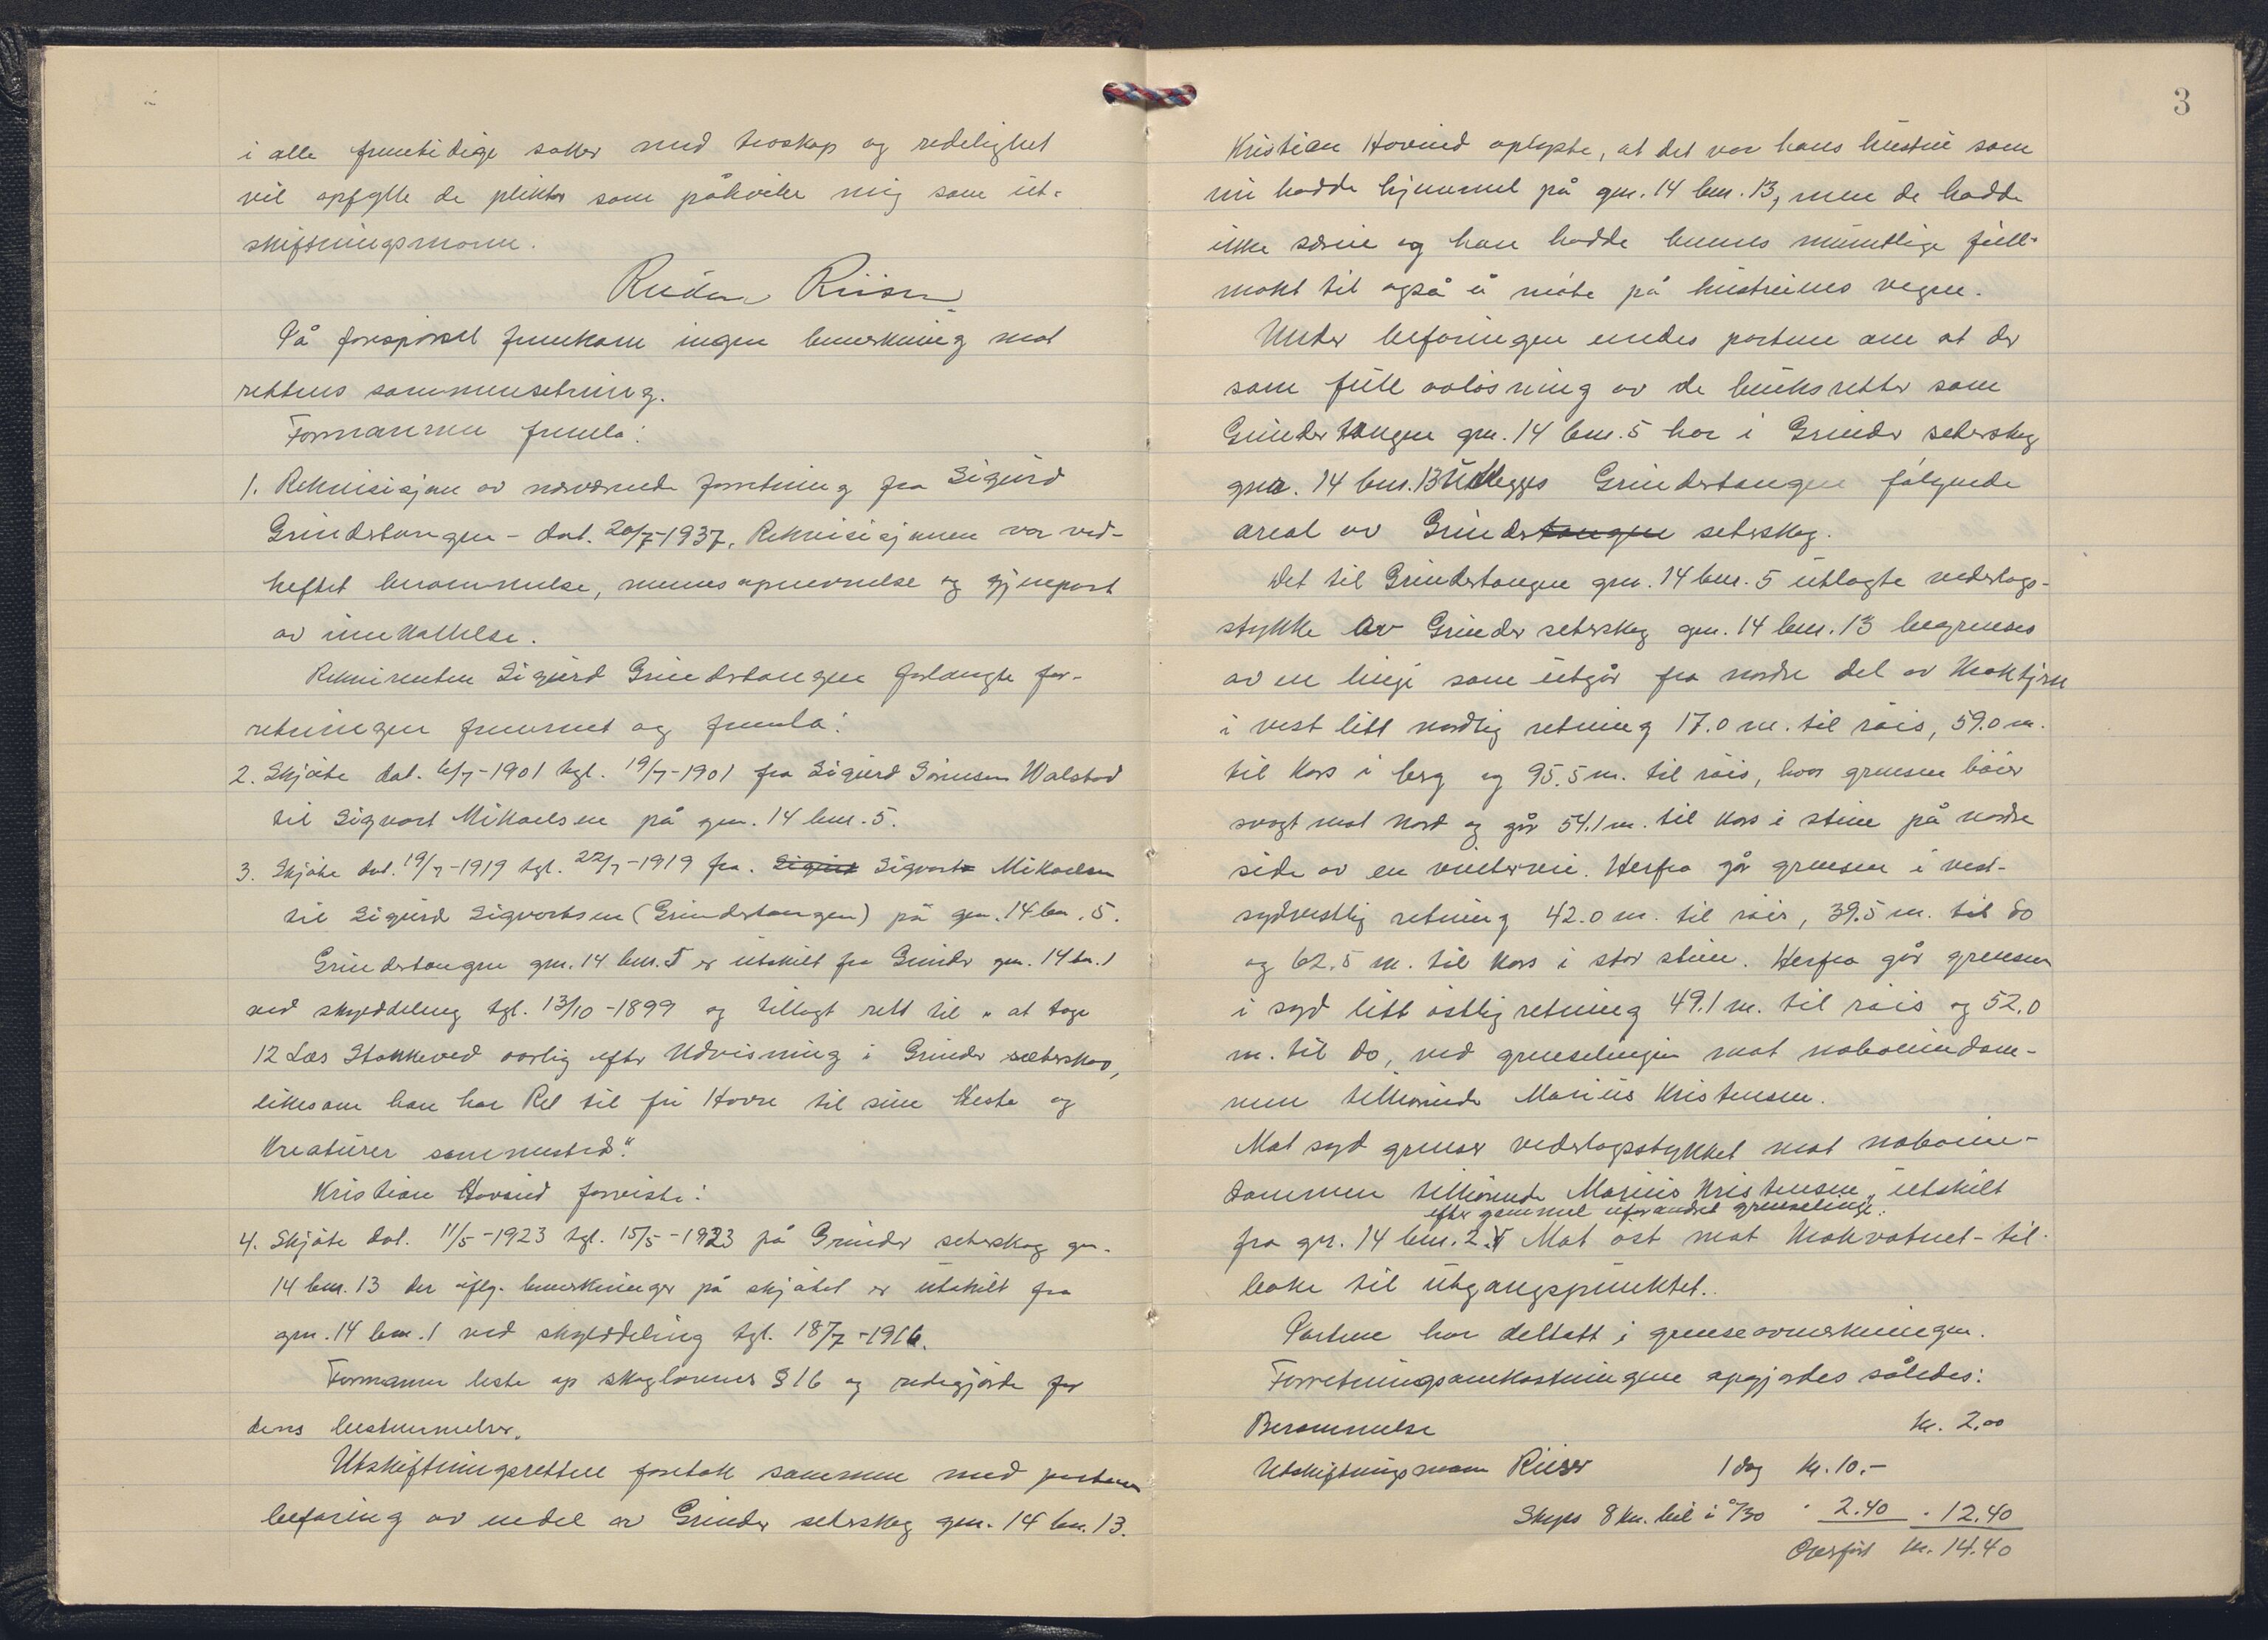 i alle fremtidige saker med troskap og redelighet
vil opfylle de plikter som påhviler mig som ut-
skiftningsmann.
Reidar Riiser
På forespørsel fremkom ingen bemerkning mot
rettens sammensetning.
Formannen fremla:
1. Rekvisisjon av nærværende forretning fra Sigurd
Grinderstangen - dat. 20/7-1937. Rekvisisjonen var ved-
heftet berammelse, mennsopnevnelse og gjenpart
av innkallelse.
Rekvirenten Sigurd Grinderstangen forlangte for-
retningen fremmet og fremla:
2. Skjøte dat. 6/7-1901 tgl. 19/7-1901 fra Sigurd Simensen Walstad
til Sigvart Mikaelsen på gnr. 14 bnr. 5.
3. Skjøte dat. 19/7-1919 tgl. 22/7-1919 fra. Sigurd Sigvart Mikaelsen
til Sigurd Sigvartsen (Grinderstangen) på gnr. 14 bnr. 5.
Grinderstangen gnr. 14 bnr. 5 er utskilt fra Grinder gnr. 14 bnr. 1
ved skylddeling tgl. 13/10-1899 og tillagt rett til "at tage
12 Læs Stakkeved aarlig efter Udvisning i Grinder sæterskov,
likesom han har Ret til fri Havn til sine Heste og
Kreaturer sammested."
Kristian Hovind forviste:
4. Skjøte dat. 11/5-1923 tgl. 15/5-1923 på Grinder seterskog gnr.
14 bnr. 13 der iflg. bemerkninger på skjøtet er utskilt fra
gnr. 14 bnr. 1 ved skylddeling tgl. 18/7-1916.
Formannen leste op skoglovens § 16 og redegjorde for
dens bestemmelser.
Utskiftningsretten foretok sammen med partene
befaring av endel av Grinder seterskog gnr. 14 bnr. 13.
3
Kristian Hovind oplyste, at det var hans hustru som
nu hadde hjemmel på gnr. 14 bnr. 13, men de hadde
ikke særeie og han hadde hennes muntlige full-
makt til også å møte på hustruens vegne.
Under befaringen enedes partene om at der
som full avløsning av de bruksretter som
Grinderstangen gnr. 14 bnr. 5 har i Grinder seterskog
gnr. 14 bnr. 13 utlegges Grinderstangen følgende
areal av Grinderstangen seterskog.
Det til Grinderstangen gnr. 14 bnr. 5 utlagte vederlags-
stykke av Grinder seterskog gnr. 14 bnr. 13 begrenses
av en linje som utgår fra nordre del av Moktjern
i vest litt nordlig retning 17.0 m. til røis, 59.0 m.
til kors i berg og 95.5 m. til røis, hvor grensen bøier
svagt mot nord og går 54.1 m. til kors i stein på nordre
side av en vintervei. Herfra går grensen i vest-
sydvestlig retning 42.0 m. til røis, 39.5 m. til do
og 62.5 m. til kors i stor stein. Herfra går grensen
i syd litt østlig retning 49.1 m. til røis og 52.0
m. til do, ved grenselinjen mot naboeiendom-
men tilhørende Marius Kristensen.
Mot syd grenser vederlagsstykket mot naboeien-
dommen tilhørende Marius Kristensen, utskilt
efter gammel uforandret grenselinje.
fra gnr. 14 bnr. 2. Mot øst mot Mokvatnet - til-
bake til utgangspunktet.
Partene har deltatt i grenseavmerkningen.
Forretningsomkostningene opgjordes således:
Berammelse kr. 2.00
Utskiftningsmann Riiser 1 dag kr. 10.-
Skyss 8 km. bil à 0/30 " 2.40 " 12.40
Overført kr. 14.40